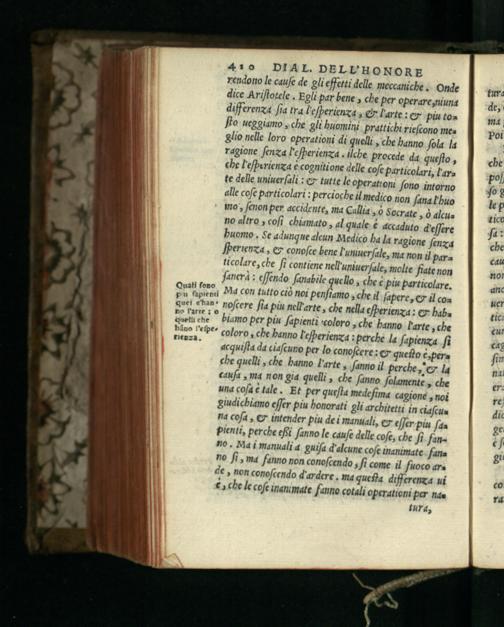 410 DIAL. DELL'HONORE
rendono le cause de gli effetti delle meccaniche. Onde
dice Aristotele. Egli par bene, che per operare, niuna
differenza sia tra l'esperienza, & l'arte: & piu to-
sto ueggiamo, che gli huomini prattichi riescono me-
glio nelle loro operationi di quelli, che hanno sola la
ragione senza l'esperienza. ilche procede da questo,
che l'esperienza è cognitione delle cose particolari, l'ar-
te delle uniuersali: & tutte le operationi sono intorno
alle cose particolari: percioche il medico non sana l'huo
mo, senon per accidente, ma Callia, ò Socrate, ò alcu-
no altro, cosi chiamato, al quale è accaduto d'essere
huomo. Se adunque alcun Medico ha la ragione senza
sperienza, & conosce bene l'uniuersale, ma non il par-
ticolare, che si contiene nell'uniuersale, molte fiate non
sanerà: essendo sanabile quello, che è piu particolare.
Ma con tutto ciò noi pensiamo, che il sapere, & il co-
noscere sia piu nell'arte, che nella esperienza: & hab-
biamo per piu sapienti coloro, che hanno l'arte, che
coloro, che hanno l'esperienza: perche la sapienza si
acquista da ciascuno per lo conoscere: & questo è, per-
che quelli, che hanno l'arte, sanno il perche, & la
causa, ma non gia quelli, che sanno solamente, che
una cosa è tale. Et per questa medesima cagione, noi
giudichiamo esser piu honorati gli architetti in ciascu-
na cosa, & intender piu de i manuali, & esser piu sa-
pienti, perche essi sanno le cause delle cose, che si fan-
no. Ma i manuali a guisa d'alcune cose inanimate fan-
no sì, ma fanno non conoscendo, sì come il fuoco ar-
de, non conoscendo d'ardere. ma questa differenza ui
è, che le cose inanimate fanno cotali operationi per na-
tura,
Quali sono
piu sapienti
quei c'han-
no l'arte: o
quelli che
hāno l'espe-
rienza.